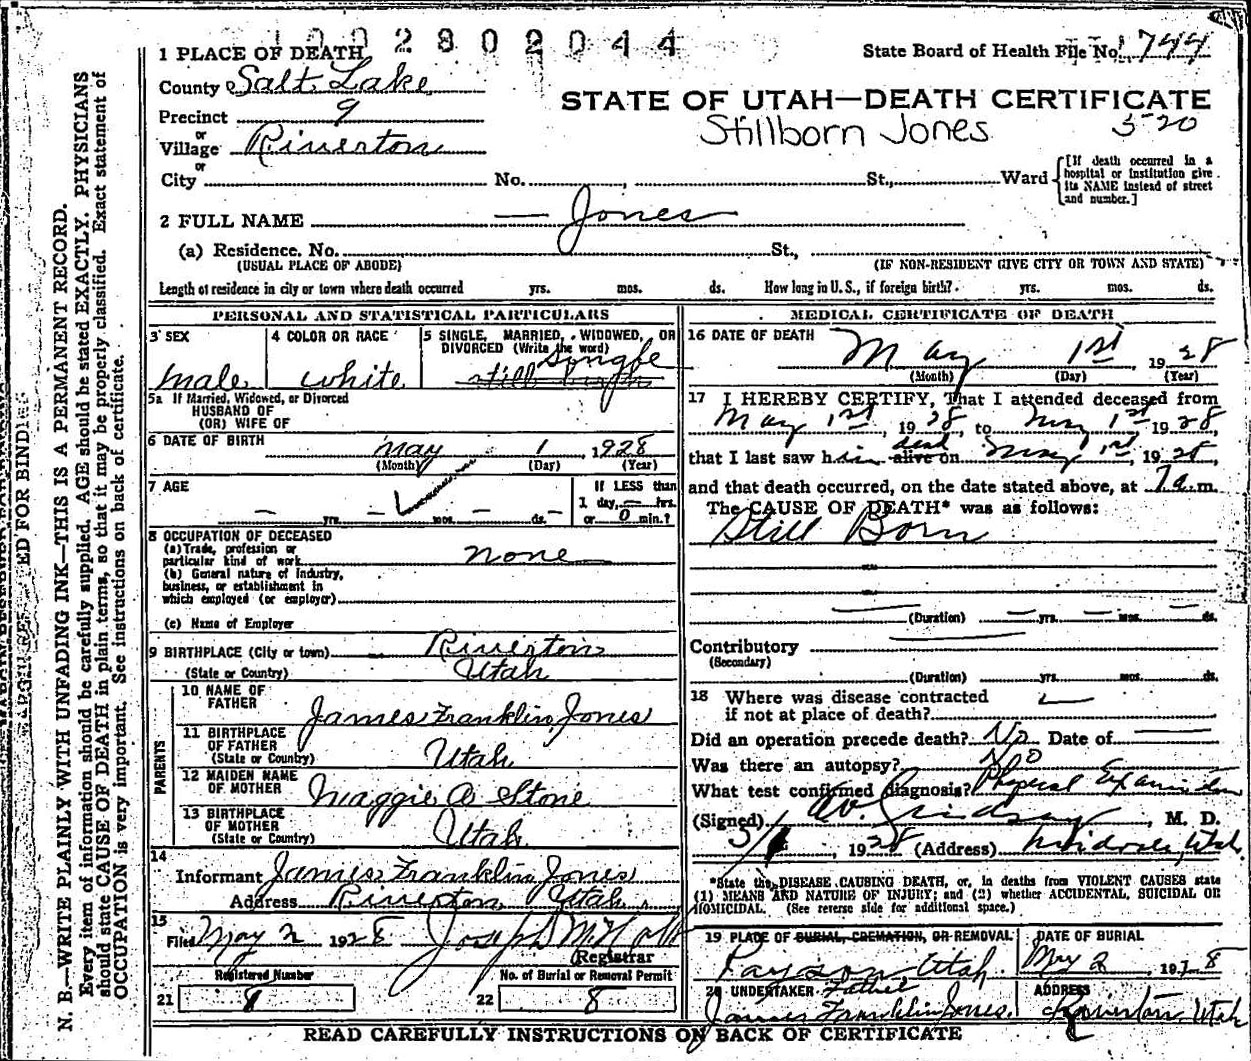 1002802044
1 PLACE OF DEATH
State Board of Health File No. 744
County Salt Lake
STATE OF UTAH—DEATH CERTIFICATE
Precinct 9
Stillborn Jones 5-20
or
Village Riverton
or
City No. , St., Ward
[If death occurred in a hospital or institution give its NAME instead of street and number.]
2 FULL NAME — Jones
(a) Residence. No. St.,
(USUAL PLACE OF ABODE) (IF NON-RESIDENT GIVE CITY OR TOWN AND STATE)
Length of residence in city or town where death occurred yrs. mos. ds. How long in U. S., if foreign birth? yrs. mos. ds.
PERSONAL AND STATISTICAL PARTICULARS
3 SEX 4 COLOR OR RACE 5 SINGLE, MARRIED, WIDOWED, OR
DIVORCED (Write the word)
Single
male white
5a If Married, Widowed, or Divorced
HUSBAND OF
(OR) WIFE OF
6 DATE OF BIRTH May 1, 1928
(Month) (Day) (Year)
7 AGE If LESS than
— yrs. — mos. — ds. 1 day, — hrs.
or 0 min.?
8 OCCUPATION OF DECEASED
(a) Trade, profession or
particular kind of work none
(b) General nature of industry,
business, or establishment in
which employed (or employer)
(c) Name of Employer
9 BIRTHPLACE (City or town) Riverton
(State or Country) Utah
PARENTS
10 NAME OF
FATHER James Franklin Jones
11 BIRTHPLACE
OF FATHER
(State or Country) Utah
12 MAIDEN NAME
OF MOTHER Maggie A Stone
13 BIRTHPLACE
OF MOTHER
(State or Country) Utah
14
Informant James Franklin Jones
Address Riverton Utah
15
Filed May 2 1928 Joseph
Registrar
Registered Number No. of Burial or Removal Permit
21 8 22 8
MEDICAL CERTIFICATE OF DEATH
16 DATE OF DEATH
May 1st 1928
(Month) (Day) (Year)
17 I HEREBY CERTIFY, That I attended deceased from
May 1st, 1928, to May 1st 1928
dead
that I last saw him alive on May 1st, 1928,
and that death occurred, on the date stated above, at 7 a.m.
The CAUSE OF DEATH* was as follows:
Still Born
(Duration) — yrs. — mos. — ds.
Contributory
(Secondary)
(Duration) yrs. mos. ds.
18 Where was disease contracted
if not at place of death?
Did an operation precede death? No Date of —
Was there an autopsy? No
What test confirmed diagnosis? Physical Examination
(Signed) Lindsay, M. D.
5/1, 1928 (Address) Midvale, Utah
*State the DISEASE CAUSING DEATH, or, in deaths from VIOLENT CAUSES state
(1) MEANS AND NATURE OF INJURY; and (2) whether ACCIDENTAL, SUICIDAL OR
HOMICIDAL. (See reverse side for additional space.)
19 PLACE OF BURIAL, CREMATION, OR REMOVAL DATE OF BURIAL
Payson Utah May 2, 1928
20 UNDERTAKER Father ADDRESS
James Franklin Jones. Riverton, Utah
READ CAREFULLY INSTRUCTIONS ON BACK OF CERTIFICATE
N. B.—WRITE PLAINLY WITH UNFADING INK—THIS IS A PERMANENT RECORD.
Every item of information should be carefully supplied. AGE should be stated EXACTLY. PHYSICIANS
should state CAUSE OF DEATH in plain terms, so that it may be properly classified. Exact statement of
OCCUPATION is very important. See instructions on back of certificate.